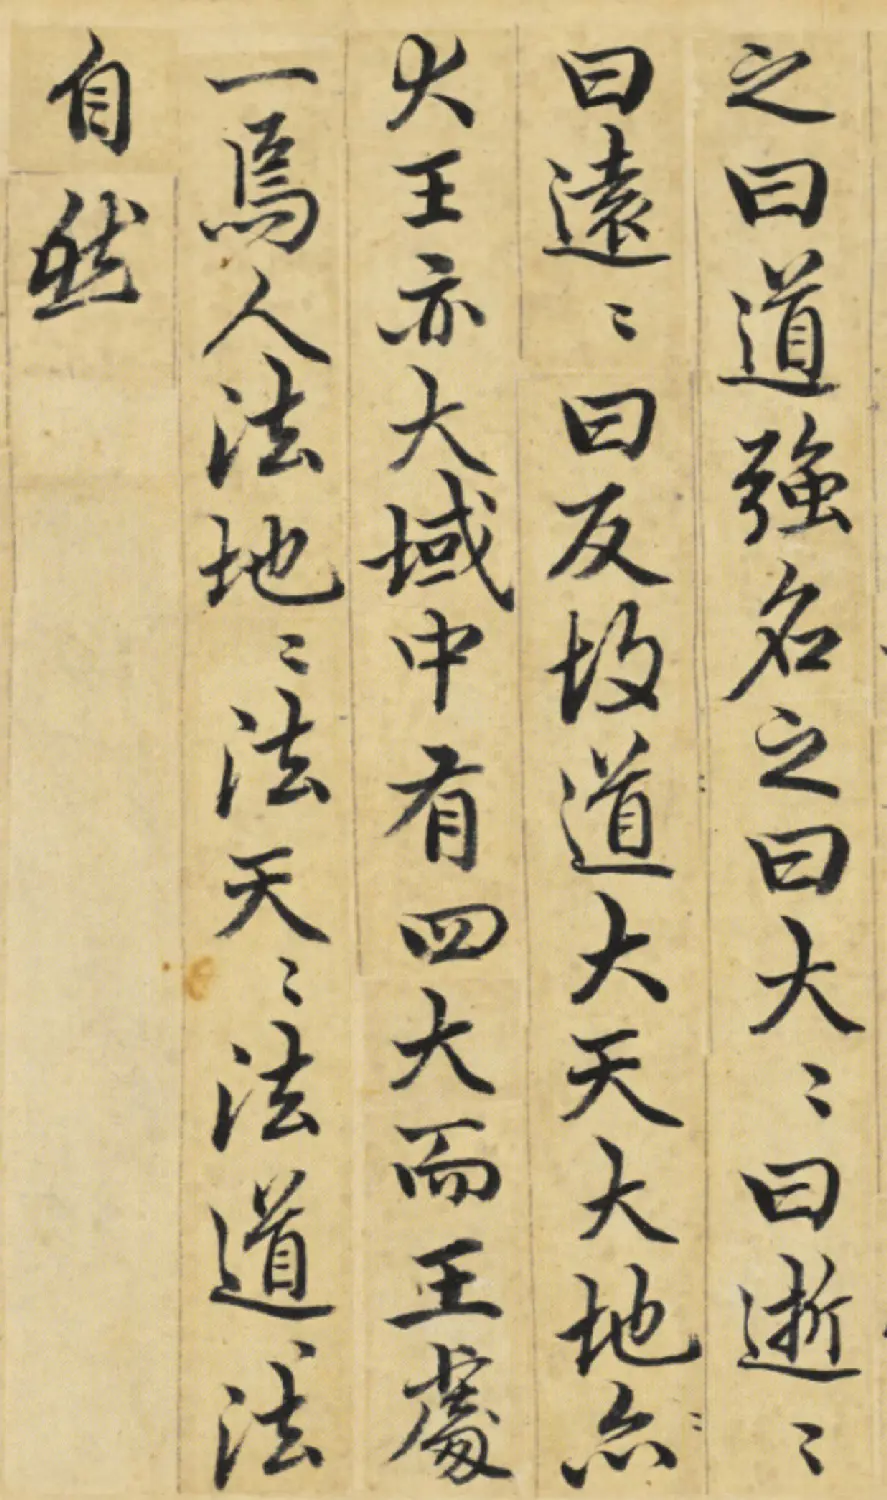 之曰道強名之曰大〻曰逝〻
曰遠〻曰反故道大天大地亦
大王亦大域中有四大而王處
一焉人法地〻法天〻法道〻法
自然